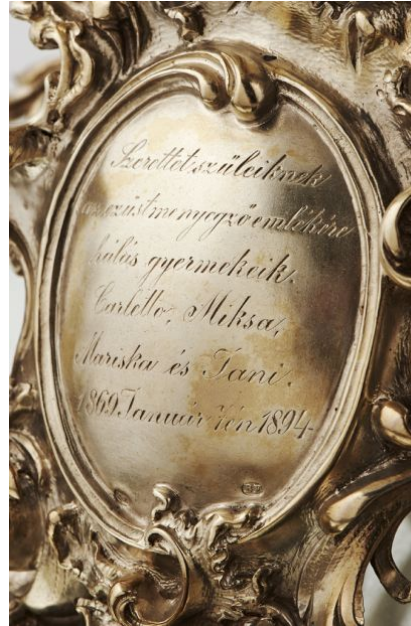 Szerettet szüleiknek
az ezüstmenyegző emlékére
hálás gyermekeik.
Carletto, Miksa,
Mariska és Jani.
1869 Január én 1894.